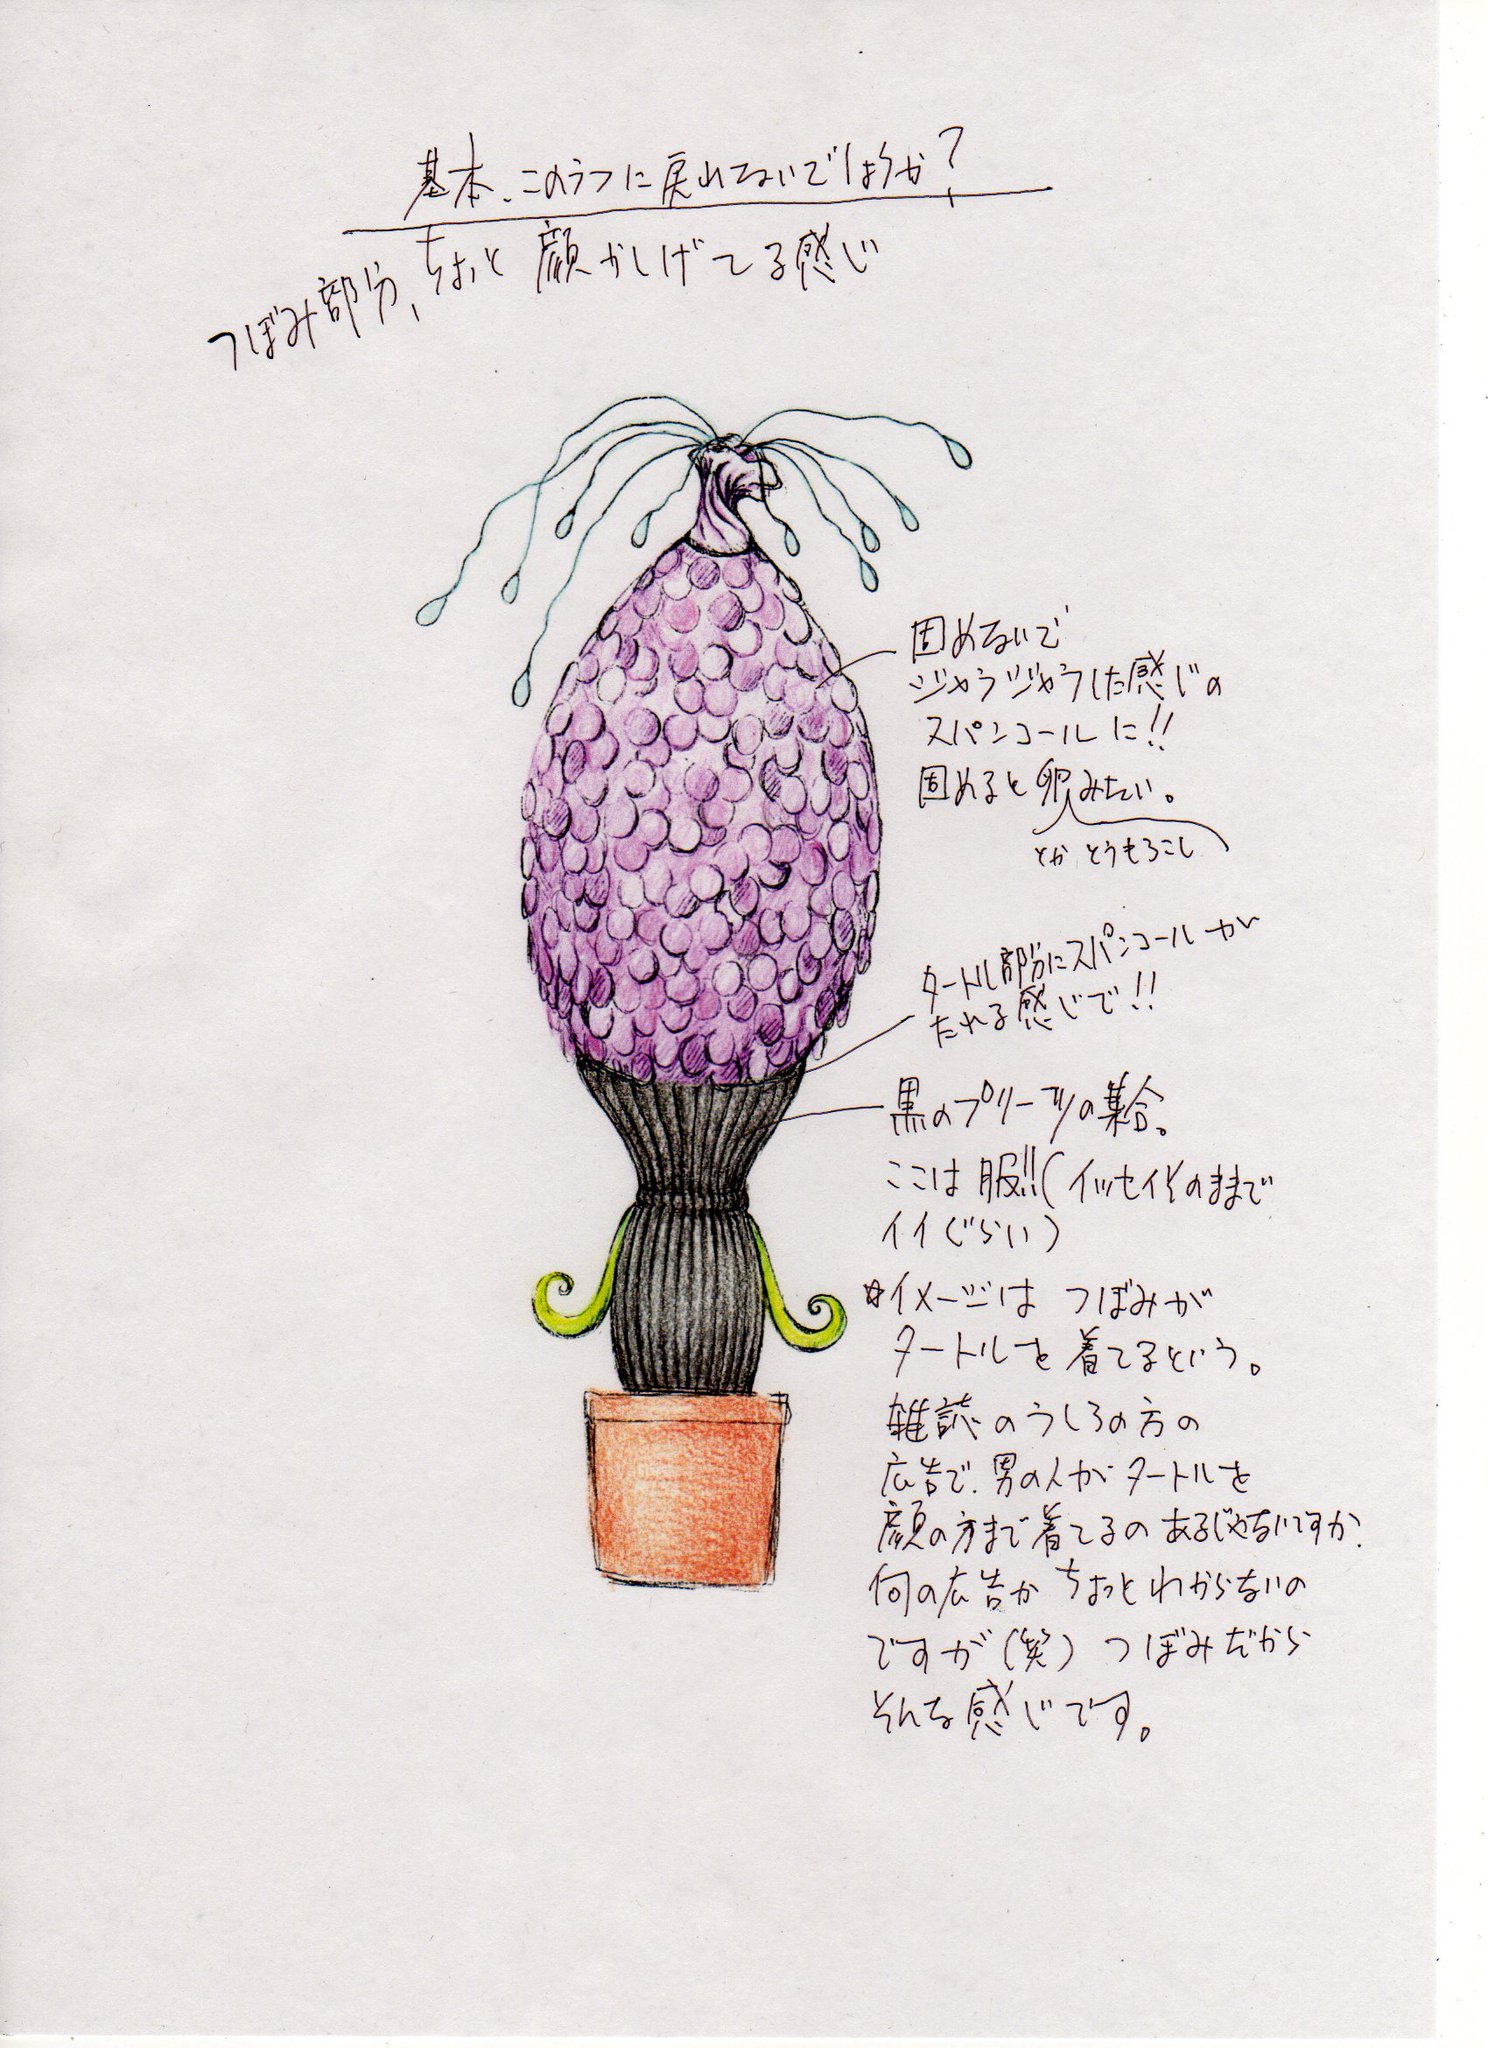 基本、このうつに戻れてないでしょうか?
つぼみ部分、ちょっと顔かしげてる感じ
固めないで
ジャラジャラした感じの
スパンコールに!!
固めると卵みたい。
とか とうもろこし
タートル部分にスパンコールが
たれる感じで!!
黒のプリーツの集合。
ここは服!!(イッセイそのままで
イイぐらい)
☆イメージは つぼみが
タートルを着てるという。
雑誌のうしろの方の
広告で、男の人がタートルを
顔の方まで着てるのあるじゃないですか。
何の広告か ちょっとわからないの
ですが(笑) つぼみだから
そんな感じです。